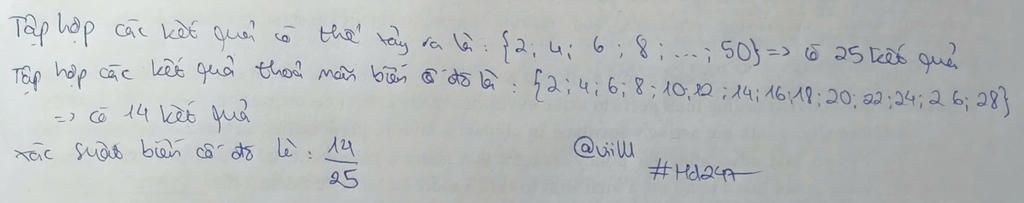 Tập hợp các kết quả có thể xảy ra là : {2; 4; 6; 8; ...; 50} => có 25 kết quả
Tập hợp các kết quả thoả mãn biến cố đó là : {2; 4; 6; 8; 10; 12; 14; 16; 18; 20; 22; 24; 26; 28}
=> có 14 kết quả
xác suất biến cố đó là : 14/25
@viiU
#Hd247